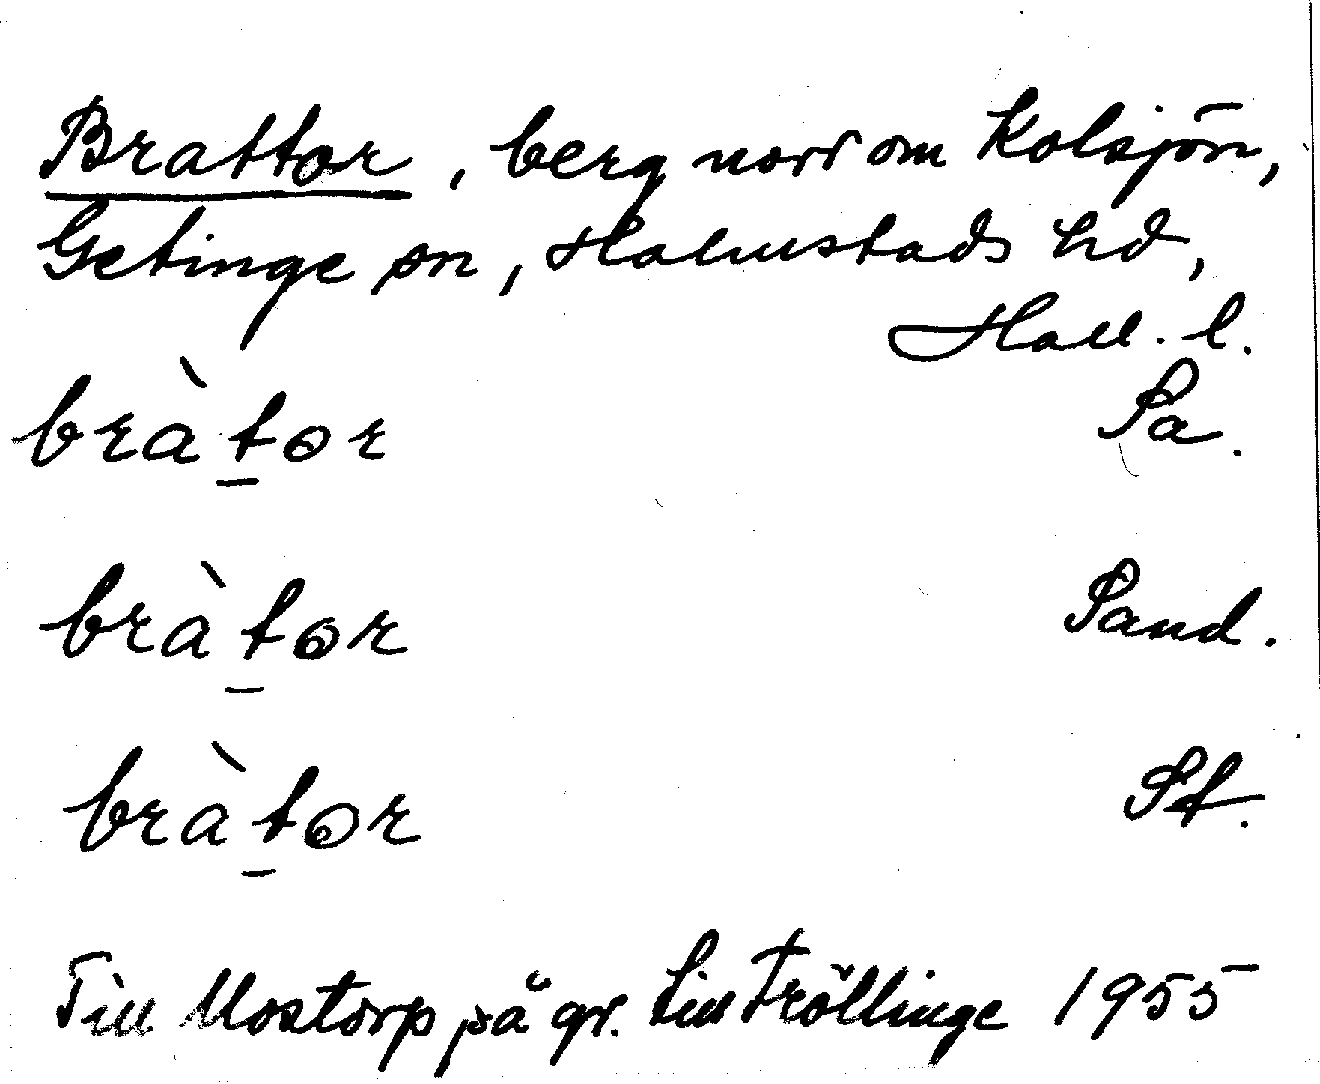 Brattor, berg norr om Kolsjön,
Getinge sn, Halmstads hd,
Hall. l.
bràt̲or Sa.
bràt̲or Sand.
bràt̲or St.
Till Mostorp på gr. till Fröllinge 1955